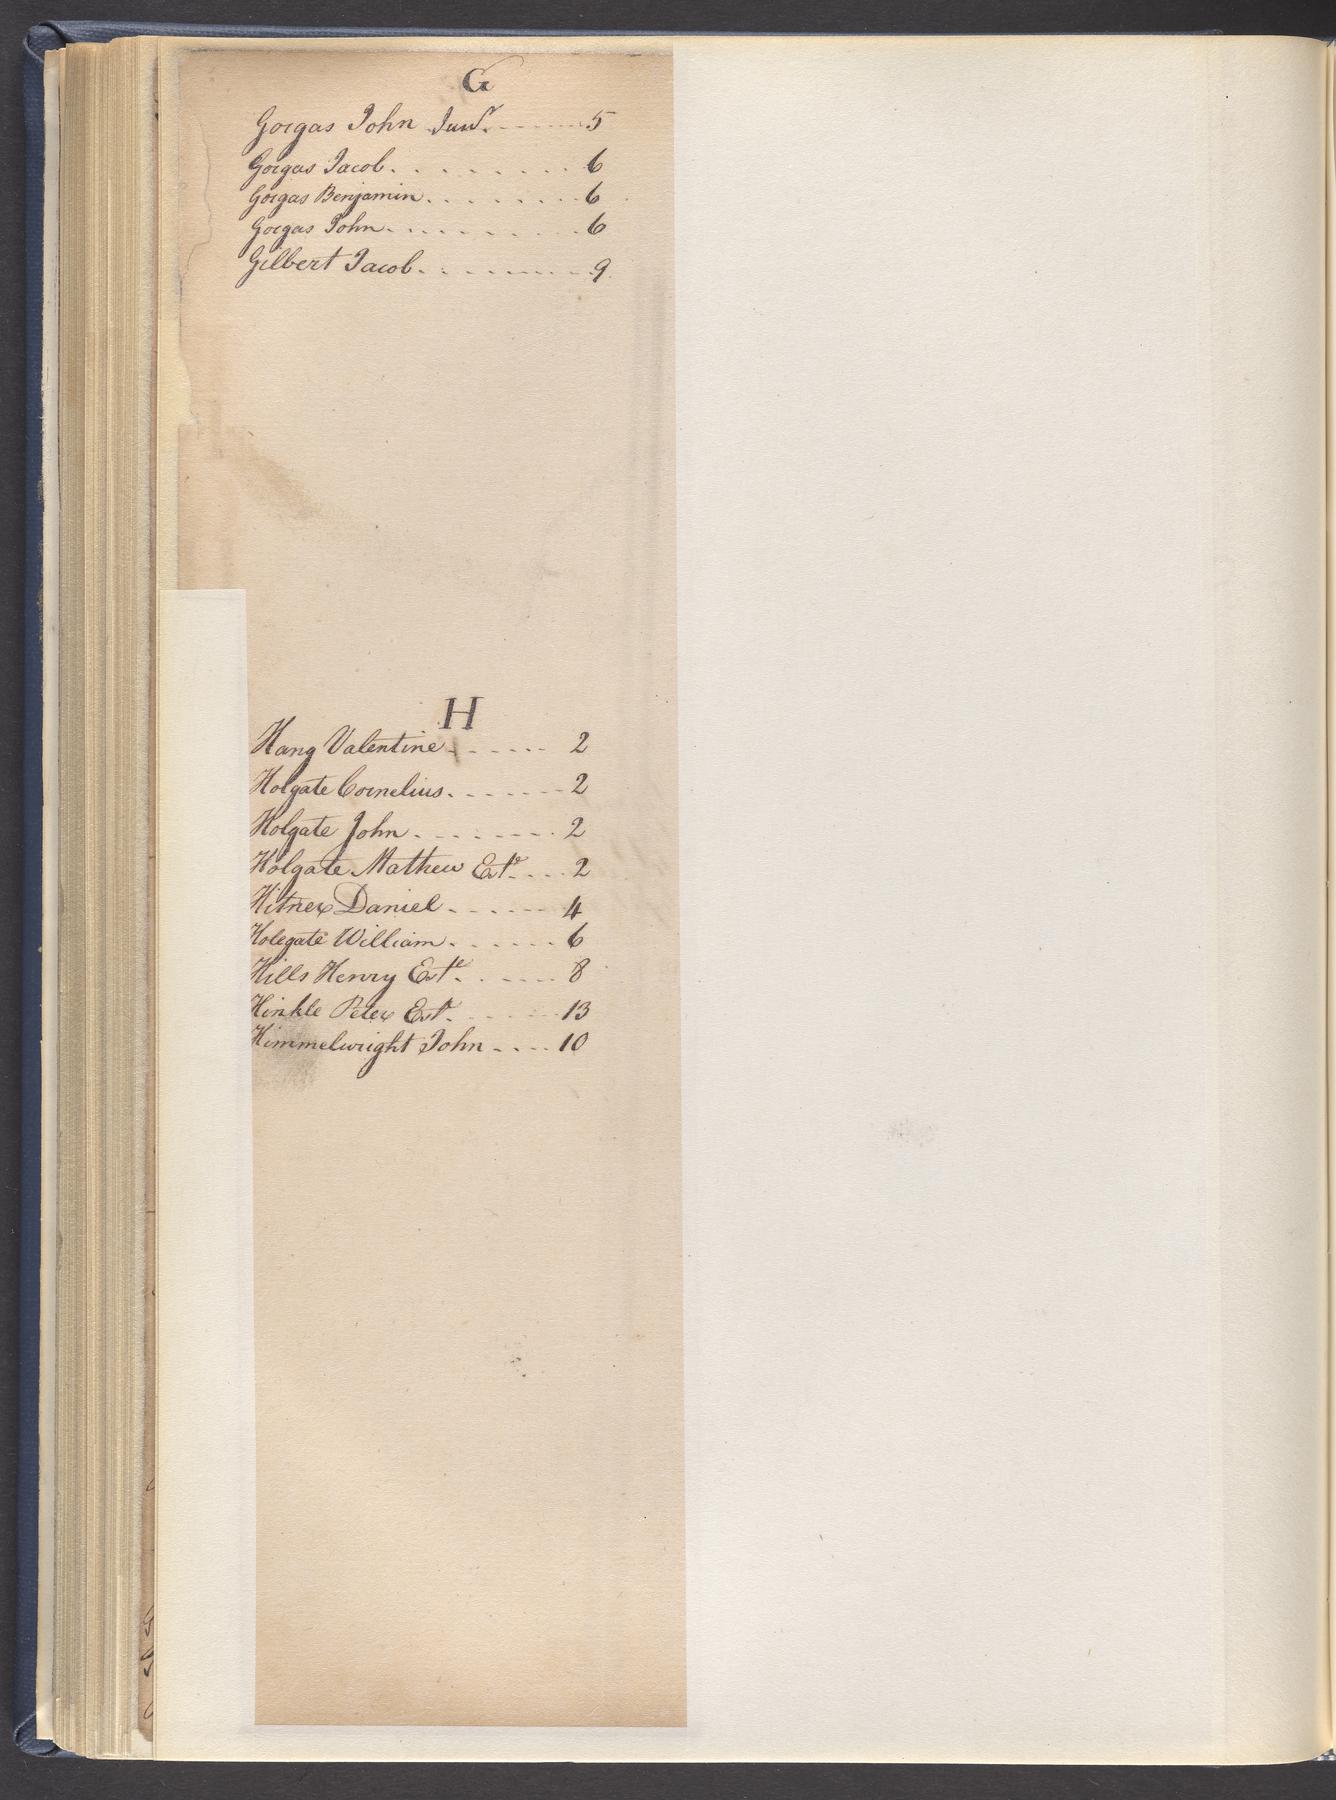 G
Gorgas John Junr. 5
Gorgas Jacob. 6
Gorgas Benjamin. 6
Gorgas John. 6
Gilbert Jacob. 9
H
Hang Valentine 2
Holgate Cornelius. 2
Holgate John. 2
Holgate Mathew Este. 2
Hitner Daniel. 4
Holegate William. 6
Hills Henry Este. 8
Hinkle Peter Este. 13
Himmelwright John 10